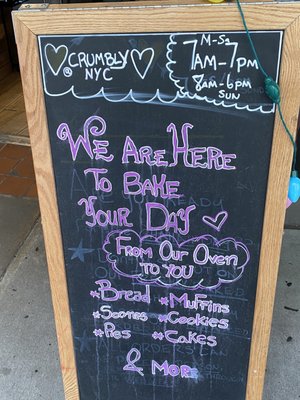 CRUMBLY
@ NYC
M-SA
7AM-7PM
8AM-6PM
SUN
WE ARE HERE
TO BAKE
YOUR DAY
FROM OUR OVEN
TO YOU
*Bread *Muffins
*Scones *Cookies
*Pies *Cakes
& MORE